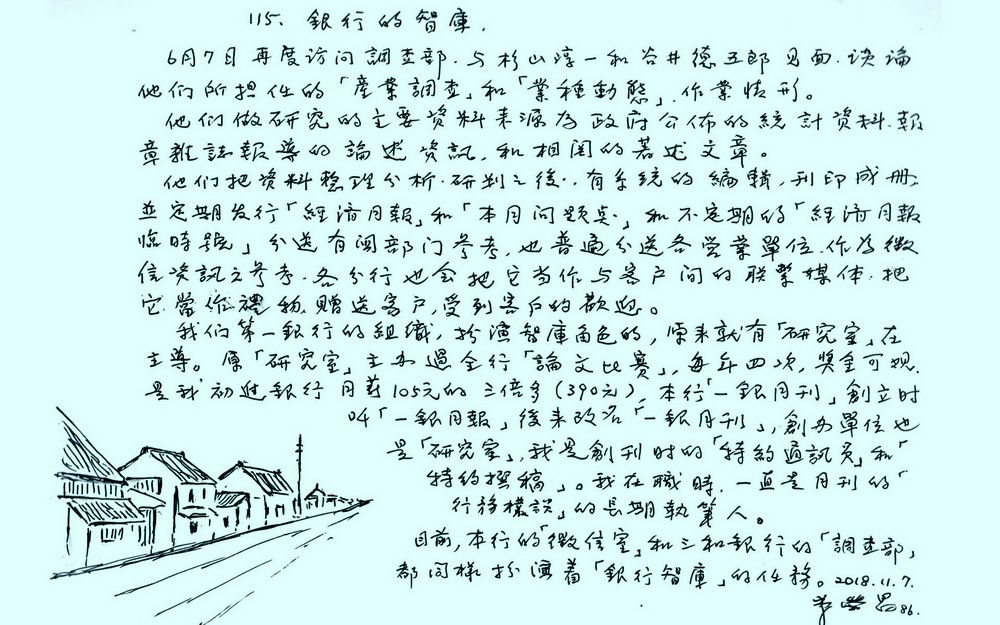 115、銀行的智庫.
6月7日再度访问調查部.与杉山淳一和谷井德五郎見面.談論
他们所担任的「產業調查」和「業種動態」.作業情形。
他们做研究的主要資料来源為政府公佈的統計資料.報
章雜誌報導的論述資訊,和相関的著述文章。
他们把資料整理分析.研判之後..有系统的編輯,刊印成册,
並定期发行「経済月報」和「本月问題点」和不定期的「経済月報
臨時號」分送有関部门参考,也普遍分送各営業單位.作為徵
信資訊之参考.各分行也会把它当作与客户间的联繫媒体.把
它當作禮物,贈送客户,受到客户的歡迎。
我们第一銀行的組織,扮演智庫角色的,原来就有「研究室」在
主導。原「研究室」主办過全行「論文比赛」,每年四次,奖金可观.
是我初進銀行月薪105元的三倍多(390元),本行「一銀月刊」創立时
叫「一銀月報」後来改名「一銀月刊」,創办單位也
是「研究室」,我是創刊时的「特約通訊員」和「
特約撰稿」。我在職時,一直是月刊的「
行務樣談」的長期執筆人。
目前,本行的「徵信室」和三和銀行的「調查部」
都同樣扮演着「銀行智庫」的任務。2018.11.7.
86.